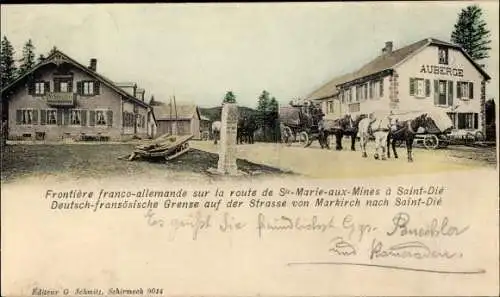 AUBERGE
Frontière franco-allemande sur la route de Ste-Marie-aux-Mines à Saint-Dié
Deutsch-französische Grenze auf der Strasse von Markirch nach Saint-Dié
Es grüßt die freundlichst
und
Kameraden
Editeur G. Schmitz, Schirmeck 9014